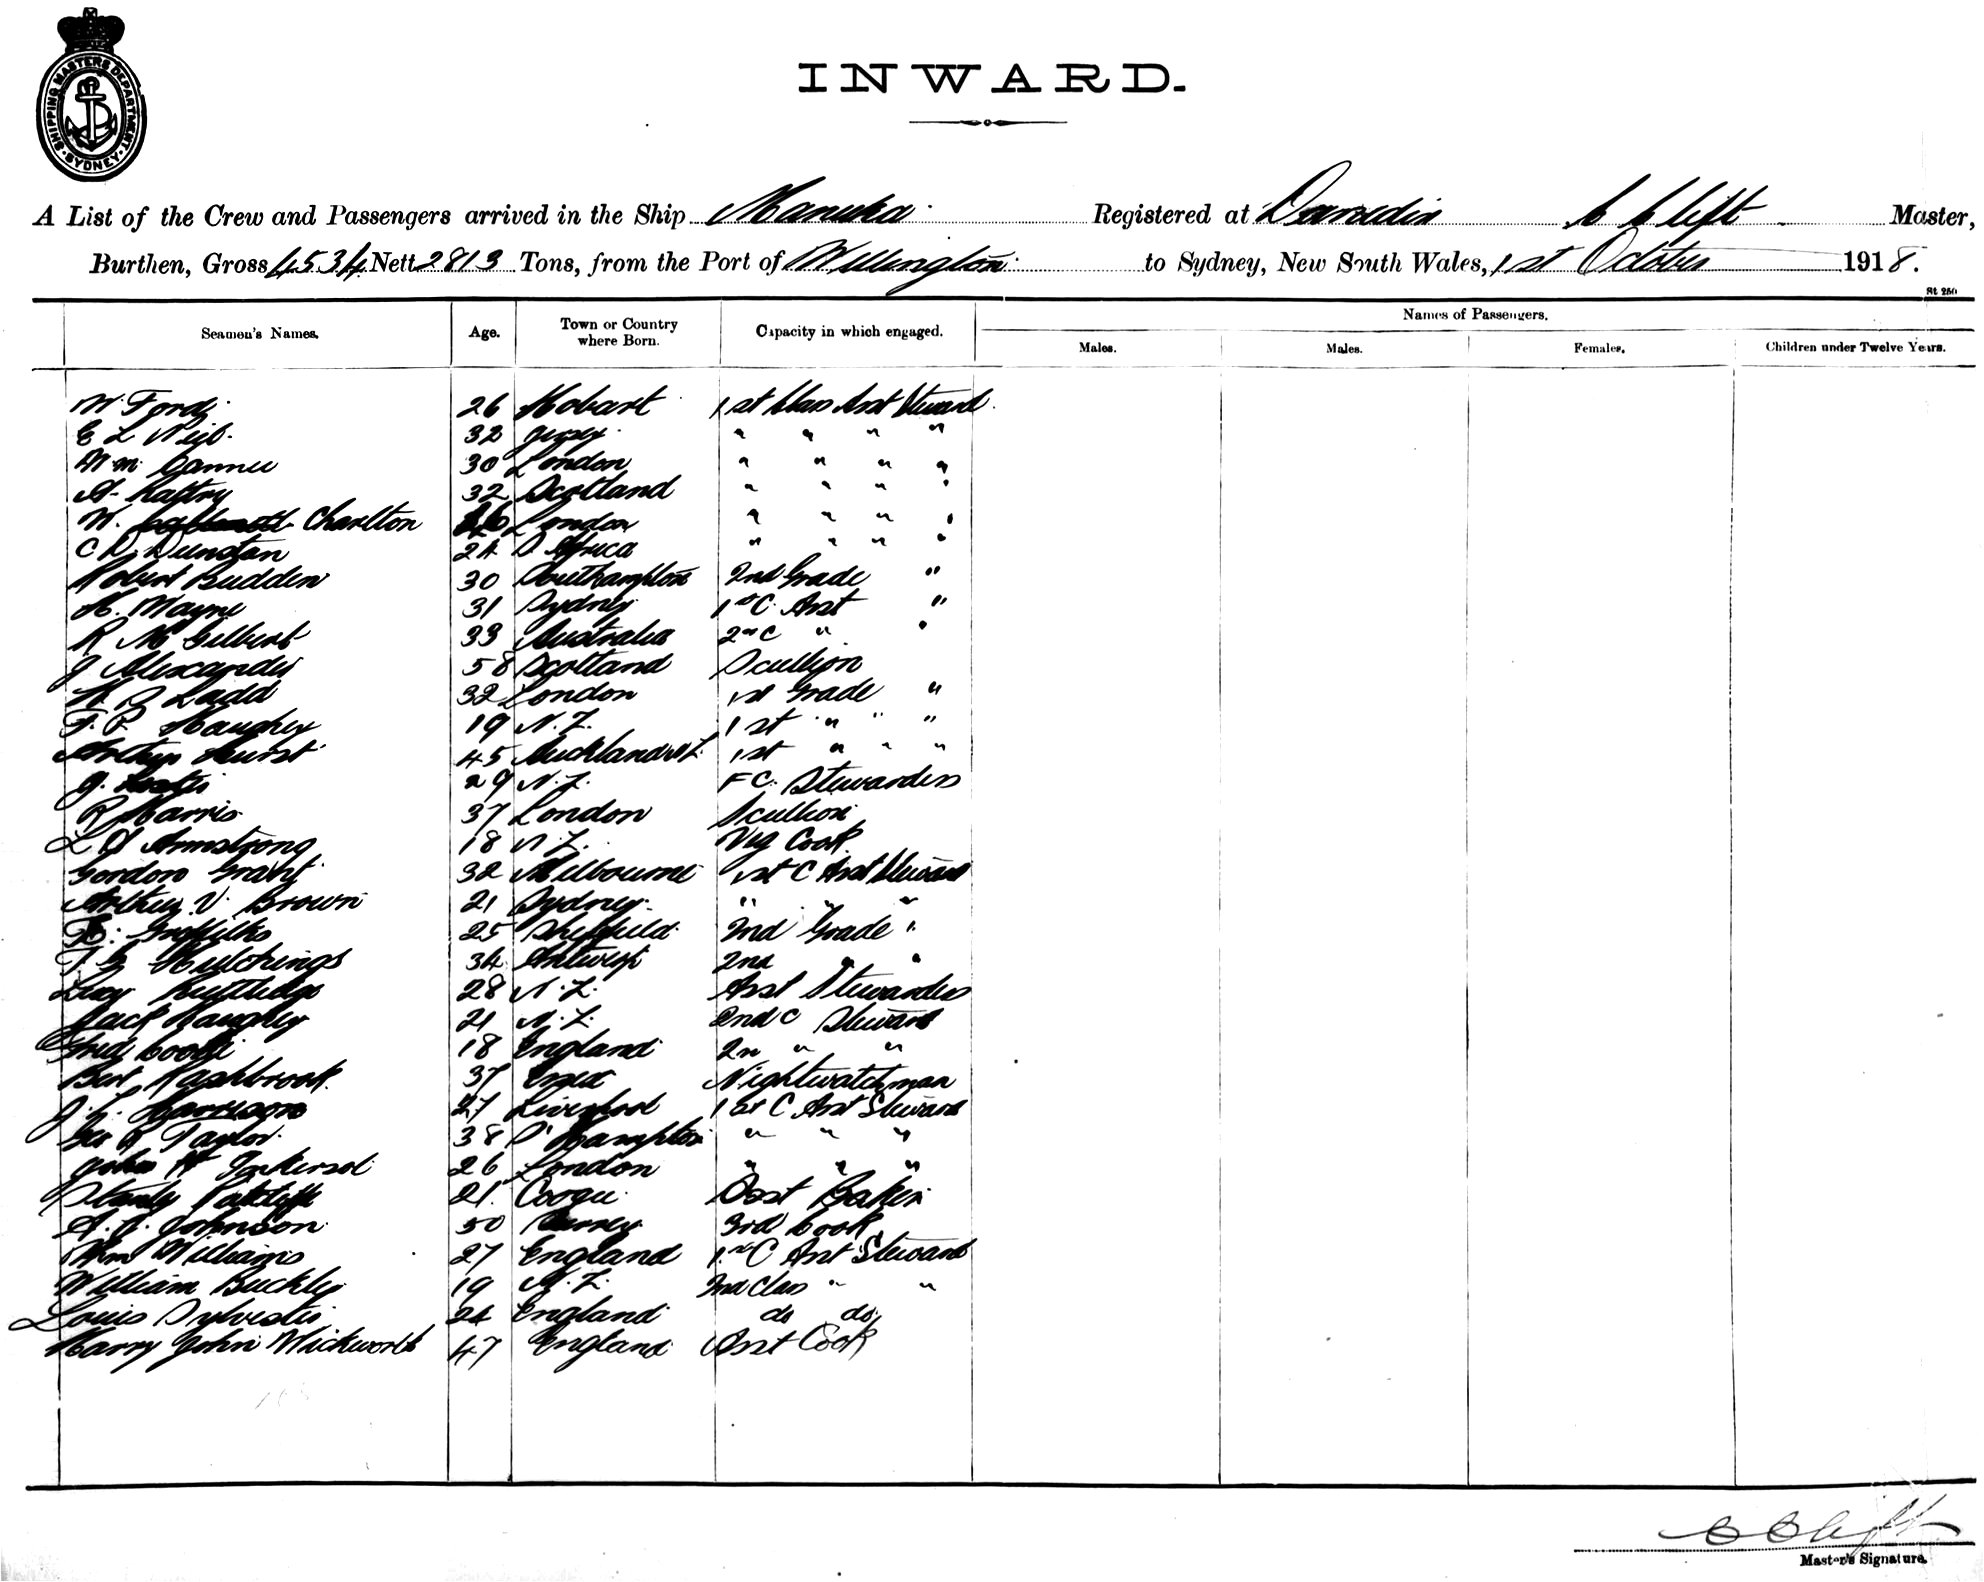 SHIPPING MASTERS DEPARTMENT
SYDNEY
INWARD.
A List of the Crew and Passengers arrived in the Ship Manuka Registered at Dunedin C Clift Master,
Burthen, Gross 4534 Nett 2813 Tons, from the Port of Wellington to Sydney, New South Wales, 1st October 1918.
St 250
Seamen's Names. Age. Town or Country where Born. Capacity in which engaged. Names of Passengers.
Males. Males. Females. Children under Twelve Years.
W. Ford 26 Hobart 1st Class Asst Steward
E L 32 Jersey " " " "
Wm 30 London " " " "
A. Rattry 32 Scotland " " " "
W. Charlton London " " " "
C D Dunstan 24 S Africa " " " "
Robert Budden 30 Southampton 2nd Grade "
H. Mayne 31 Sydney 1st C. Asst "
R M Gilbert 33 Australia 2nd C " "
J Alexander 58 Scotland Scullion
Ladd 32 London 1st Grade "
F. P. Haughey 19 N. Z. 1st " " "
Arthur Hurst 45 Auckland N Z. 1st " " "
J. 29 N. Z. F C. Stewardess
R Harris 37 London Scullion
L A Armstrong 18 N Z. Veg Cook
Gordon Grant 32 Melbourne 1st C Asst Steward
Arthur V. Brown 21 Sydney " " "
Griffiths 25 Sheffield 2nd Grade "
Hutchings 34 Antwerp 2nd " "
Rutledge 28 N. Z. Asst Stewardess
Jack Haughey 21 N. Z. 2nd C Steward
Fred 18 England 2n " "
Bert Rashbrook 37 Essex Nightwatchman
J. Harrison 27 Liverpool 1st C Asst Steward
Geo R Taylor 38 S'Hampton " " "
John H Inkersol 26 London " " "
Stanly Ratcliffe 21 Coogee Asst Baker
A. Johnson 50 Surrey 3rd Cook
Wm Williams 27 England 1st C Asst Steward
William Buckley 19 N. Z. 2nd Class " "
Louis Sylvester 24 England do do
Harry John Wickworth 47 England Asst Cook
C Clift
Master's Signature.